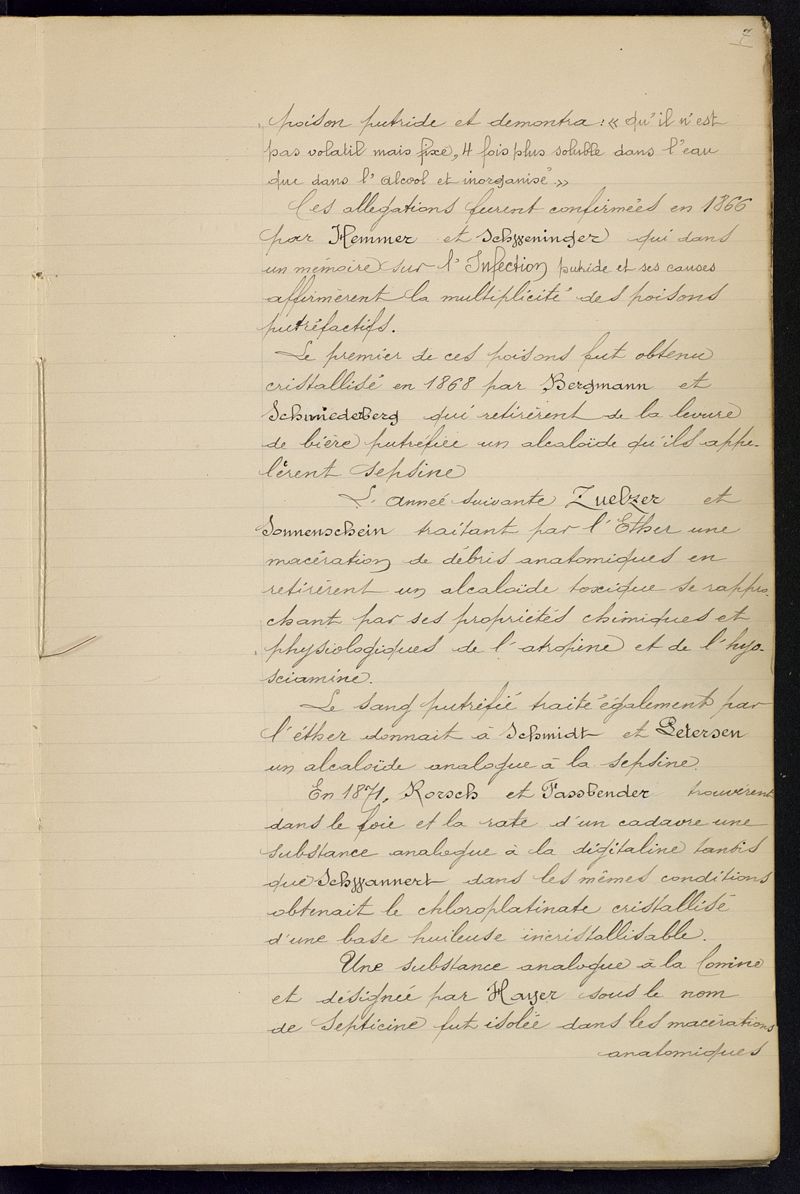 7
poison putride et demontra : « qu'il n'est
pas volatil mais fixe, 4 fois plus soluble dans l'eau
que dans l'alcool et inorganisé »
Ces allegations furent confirmées en 1866
par Hemmer et Schweninger qui dans
un mémoire sur l'Infection putride et ses causes
affirmèrent la multiplicité des poisons
putréfactifs.
Le premier de ces poisons fut obtenu
cristallisé en 1868 par Bergmann et
Schmiedeberg qui retirèrent de la levure
de bière putréfiée un alcaloïde qu'ils appe-
lèrent sepsine
L'année suivante Zuelzer et
Sonnenschein traitant par l'Ether une
macération de débris anatomiques en
retirèrent un alcaloïde toxique se rappro-
chant par ses propriétés chimiques et
physiologiques de l'atropine et de l'hyo-
sciamine.
Le sang putréfié traité également par
l'éther donnait à Schmidt et Petersen
un alcaloïde analogue à la sepsine.
En 1871, Rorsch et Fassbender trouvèrent
dans le foie et la rate d'un cadavre une
substance analogue à la digitaline tandis
que Schwannert dans les mêmes conditions
obtenait le chloroplatinate cristallisé
d'une base huileuse incristallisable.
Une substance analogue à la Conine
et désignée par Hager sous le nom
de Septicine fut isolée dans les macérations
anatomiques